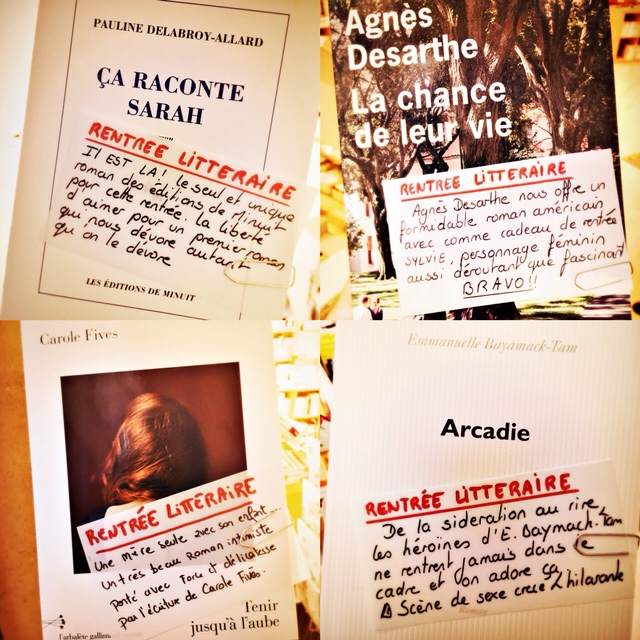 PAULINE DELABROY-ALLARD
ÇA RACONTE
SARAH
RENTREE LITTERAIRE
Il EST LA! le seul et unique
roman des éditions de Minuit
pour cette rentrée. La liberté
d'aimer pour un premier roman
qui nous dévore autant
qu'on le dévore
LES ÉDITIONS DE MINUIT
Agnès
Desarthe
La chance
de leur vie
RENTREE LITTERAIRE
Agnès Desarthe nous offre un
formidable roman américain
avec comme cadeau de rentrée
SYLVIE, personnage féminin
aussi déroutant que fascinant
BRAVO!!
Carole Fives
RENTRÉE LITTÉRAIRE
Une mère seule avec son enfant...
Un très beau Roman intimiste
porté avec Force et délicatesse
par l'écriture de Carole Fives.
Tenir
jusqu'à l'aube
l'arbalète gallim
Emmanuelle Bayamack-Tam
Arcadie
RENTRÉE LITTERAIRE
De la sideration au rire,
les héroïnes d'E. Baymack-Tam
ne rentrent jamais dans le
cadre et on adore ça
Scène de sexe crue & hilarante